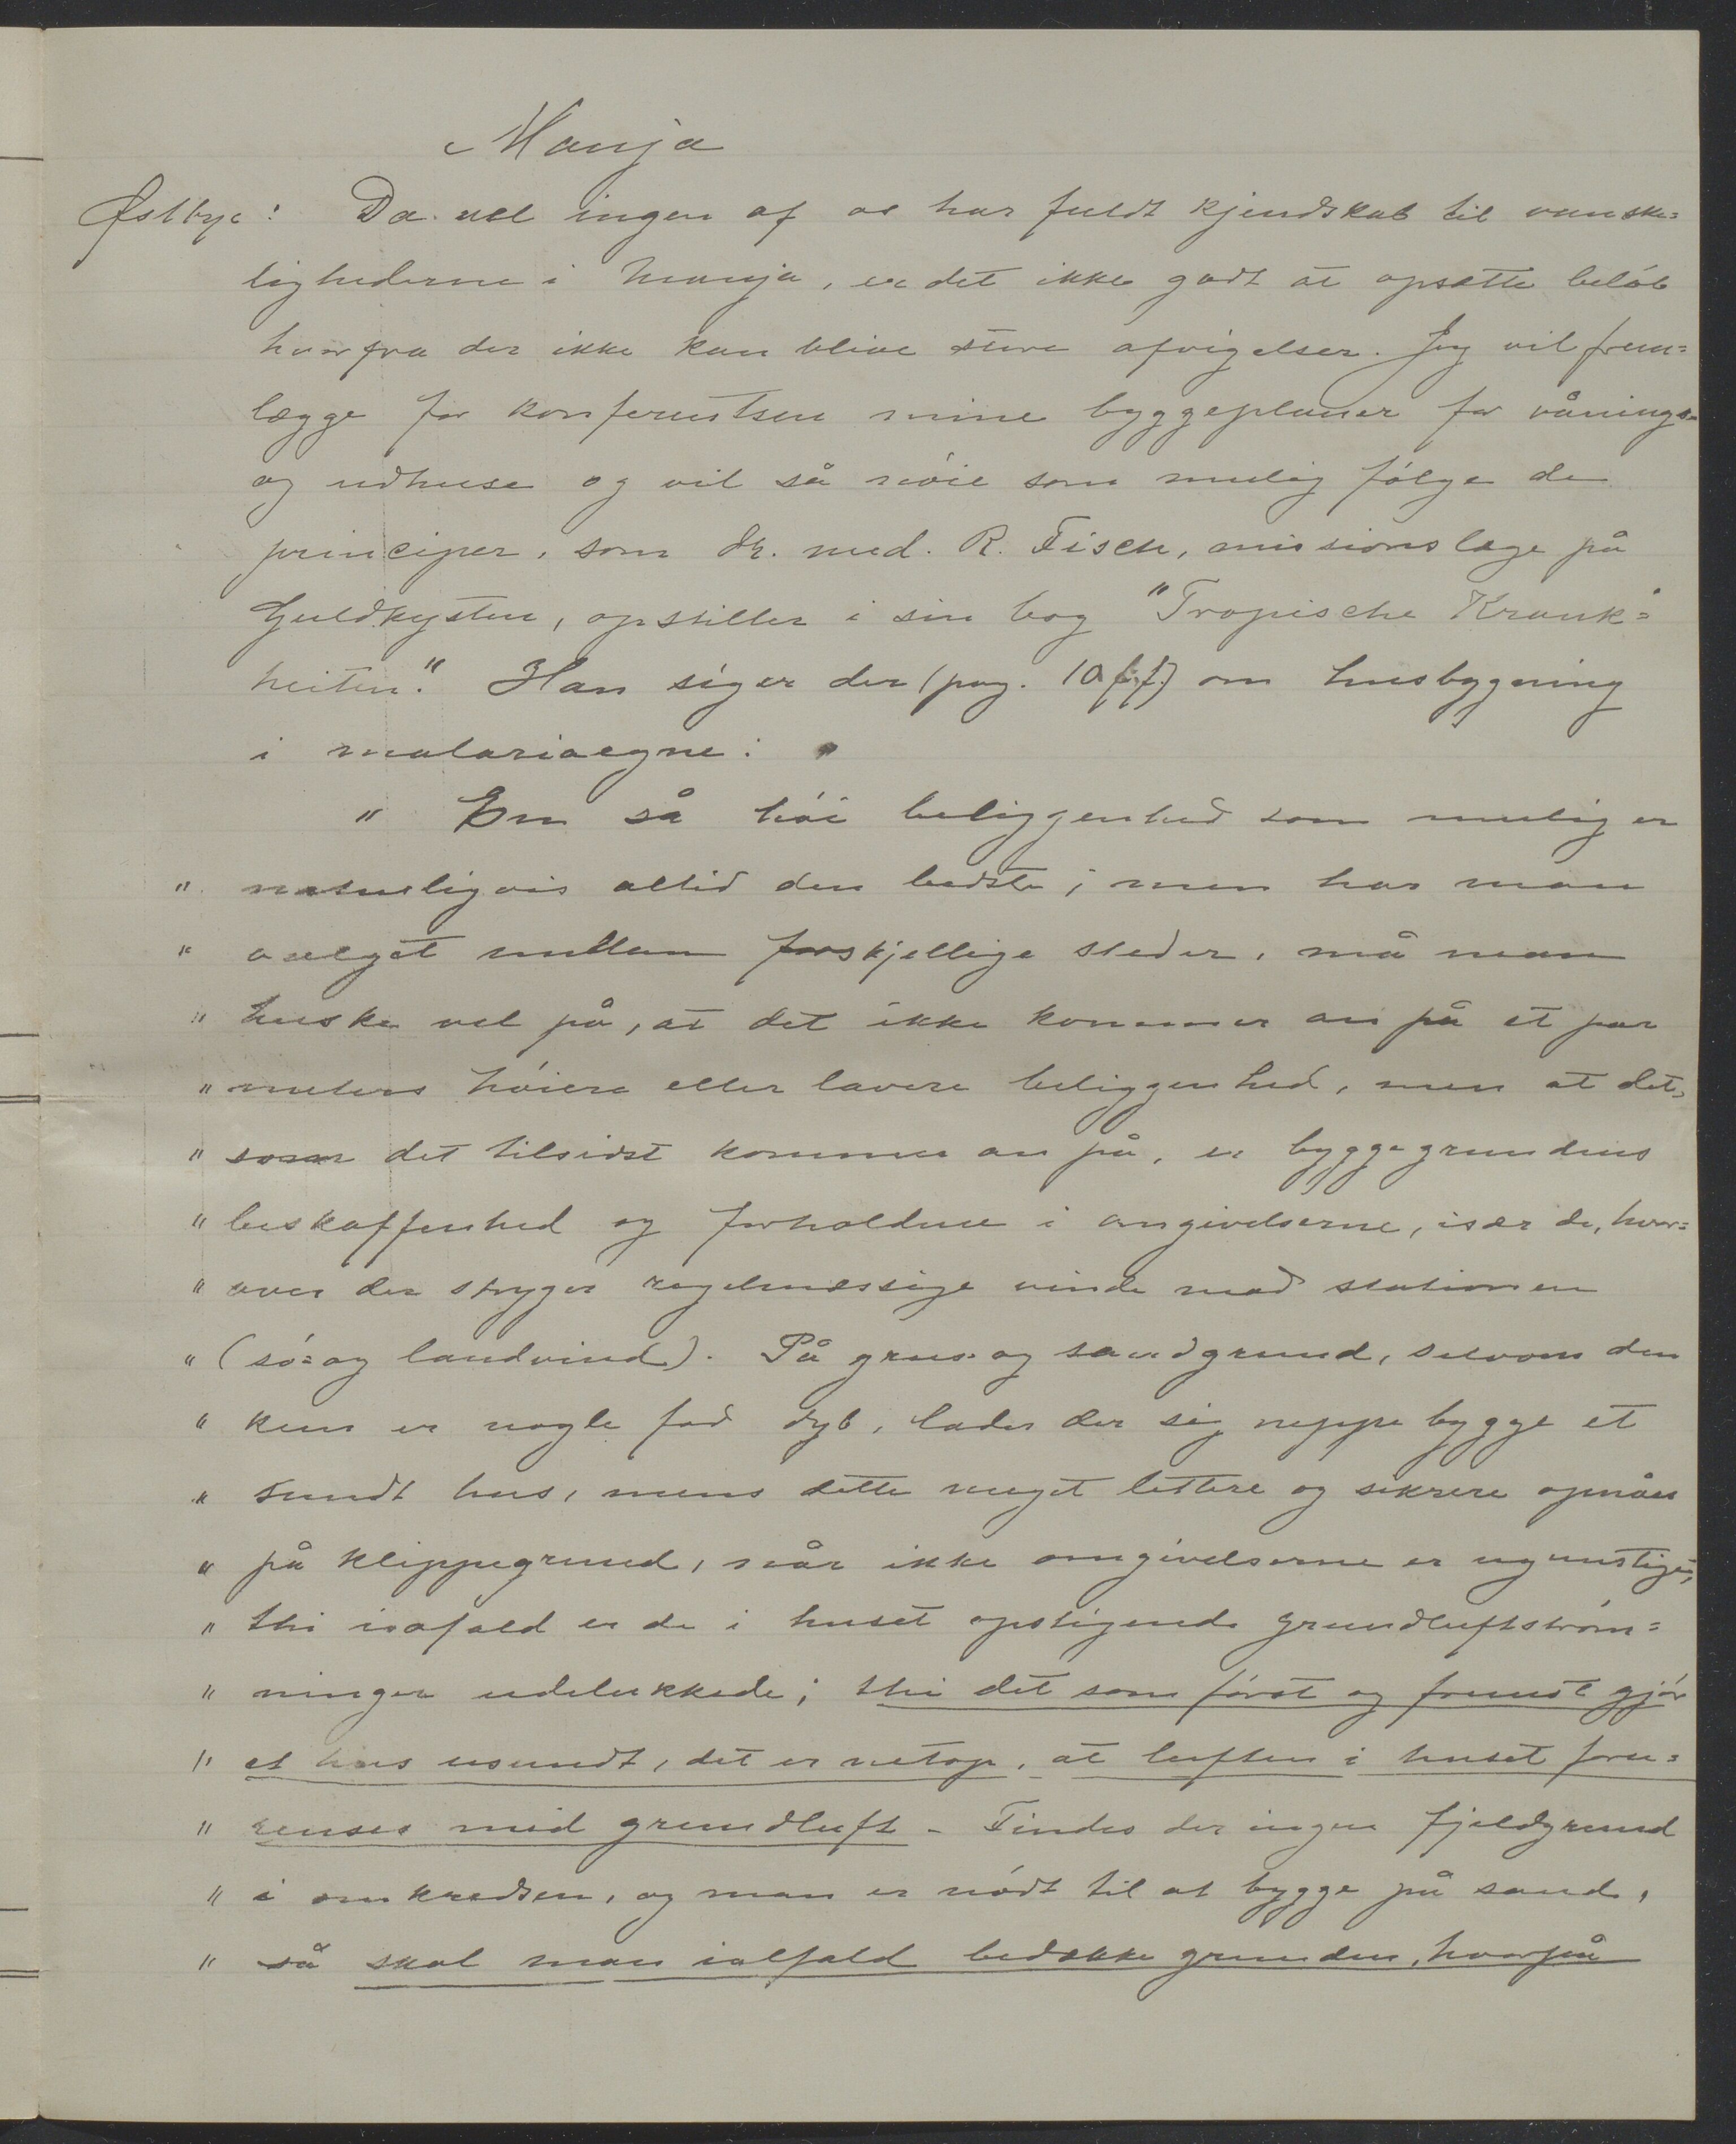 Manja
Østbye: Da vel ingen af os har fuldt kjendskab til vanske=
lighederne i Manja, er det ikke godt at opsætte beløb
hvorfra der ikke kan blive store afvigelser. Jeg vil frem=
lægge for konferentsen mine byggeplaner for vånings=
og udhuse og vil så nøie som mulig følge de
principer, som dr. med. R. Fisch, missionslæge på
Guldkysten, opstiller i sin bog "Tropische Krank=
heiten." Han siger der (pag. 10 ff) om husbygning
i malariaegne:
" En så høi beliggenhed som mulig er
" naturligvis altid den bedste; men har man
" valget mellem forskjellige steder, må man
" huske vel på, at det ikke kommer an på et par
" meters høiere eller lavere beliggenhed, men at det,
" som det tilsidst kommer an på, er byggegrundens
" beskaffenhed og forholdene i omgivelserne, især de, hvor=
" over der stryger regelmæssige vinde mod stationen
" (sø= og landvind). På grus= og sandgrund, selvom den
" kun er nogle fod dyb, lader der sig neppe bygge et
" sundt hus, mens dette meget lettere og sikrere opnåes
" på klippegrund, når ikke omgivelserne er ugunstige;
" thi isåfald er de i huset opstigende grundluftstrøm=
" ninger udelukkede; thi det som først og fremst gjør
" et hus usundt, det er netop, at luften i huset foru=
" renses med grundluft. - Findes der ingen fjeldgrund
" i omkredsen, og man er nødt til at bygge på sand,
" så skal man ialfald bedække grunden, hvorpå